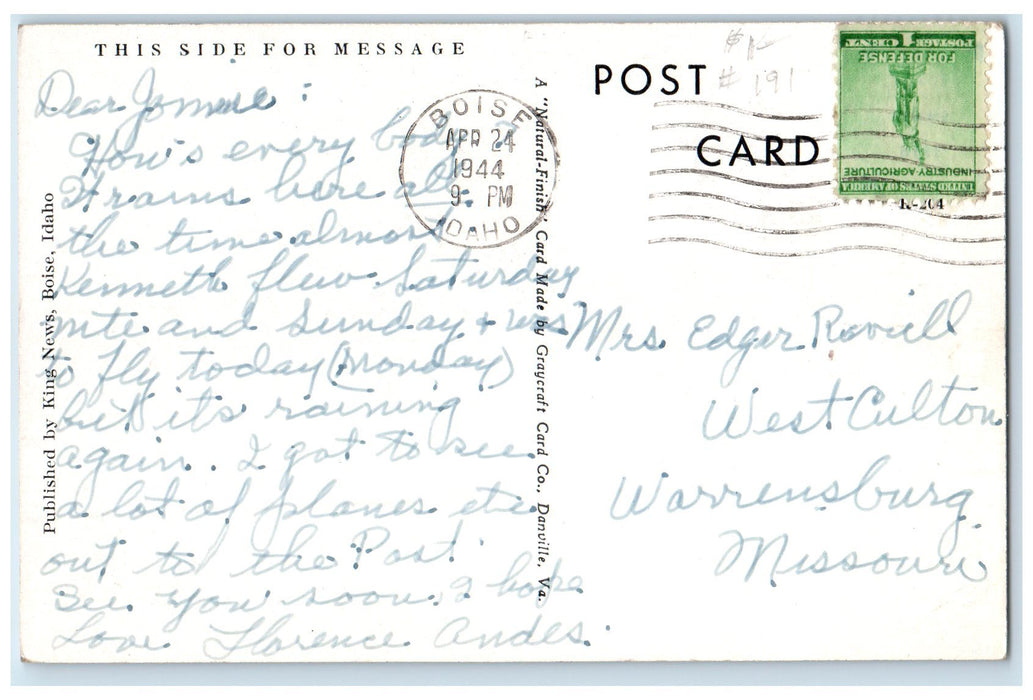 THIS SIDE FOR MESSAGE
Dear
How's every body?
It rains here all
the time almost
Kenneth flew Saturday
nite and Sunday + was
to fly today (Monday)
but it's raining
again. I got to see
a lot of planes etc
out to the Post.
See you soon. I hope
Love Florence Andes.
Published by King News, Boise, Idaho
A "Natural-Finish" Card Made by Graycraft Card Co., Danville, Va.
BOISE
APR 24
1944
9 PM
IDAHO
POST
CARD
# 191
1 CENT POSTAGE
FOR DEFENSE
INDUSTRY-AGRICULTURE
UNITED STATES OF AMERICA
K-204
Mrs. Edgar Raviell
West Culton
Warrensburg
Missouri